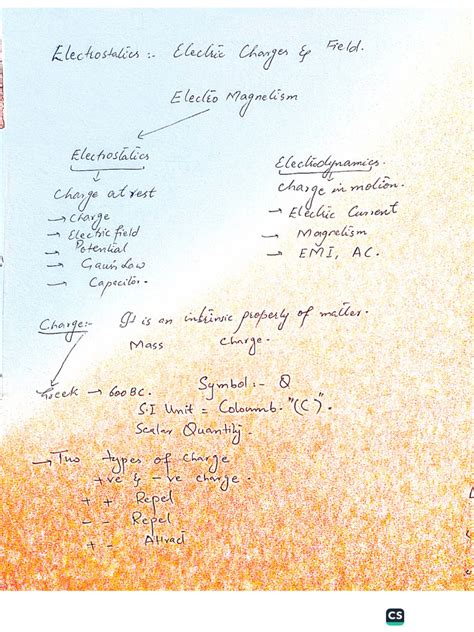 Electrostatics :- Electric Charges & Field.
Electro Magnetism
Electrostatics
Charge at rest
→ Charge
→ Electric field
→ Potential
→ Gauss Law
→ Capacitor.
Electrodynamics.
charge in motion.
→ Electric Current
→ Magnetism
→ EMI, AC.
Charge:- It is an intrinsic property of matter.
Mass Charge.
Greek → 600 BC. Symbol :- Q
S.I Unit = Coloumb. "(C)".
Scalar Quantity.
→ Two types of charge
+ve & -ve charge.
+ + Repel
- - Repel
+ - Attract
CS